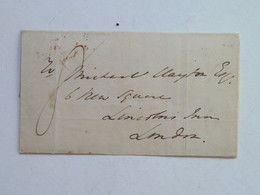 To Michael Clayton Esq.
6 New Square
Lincolns Inn
London.